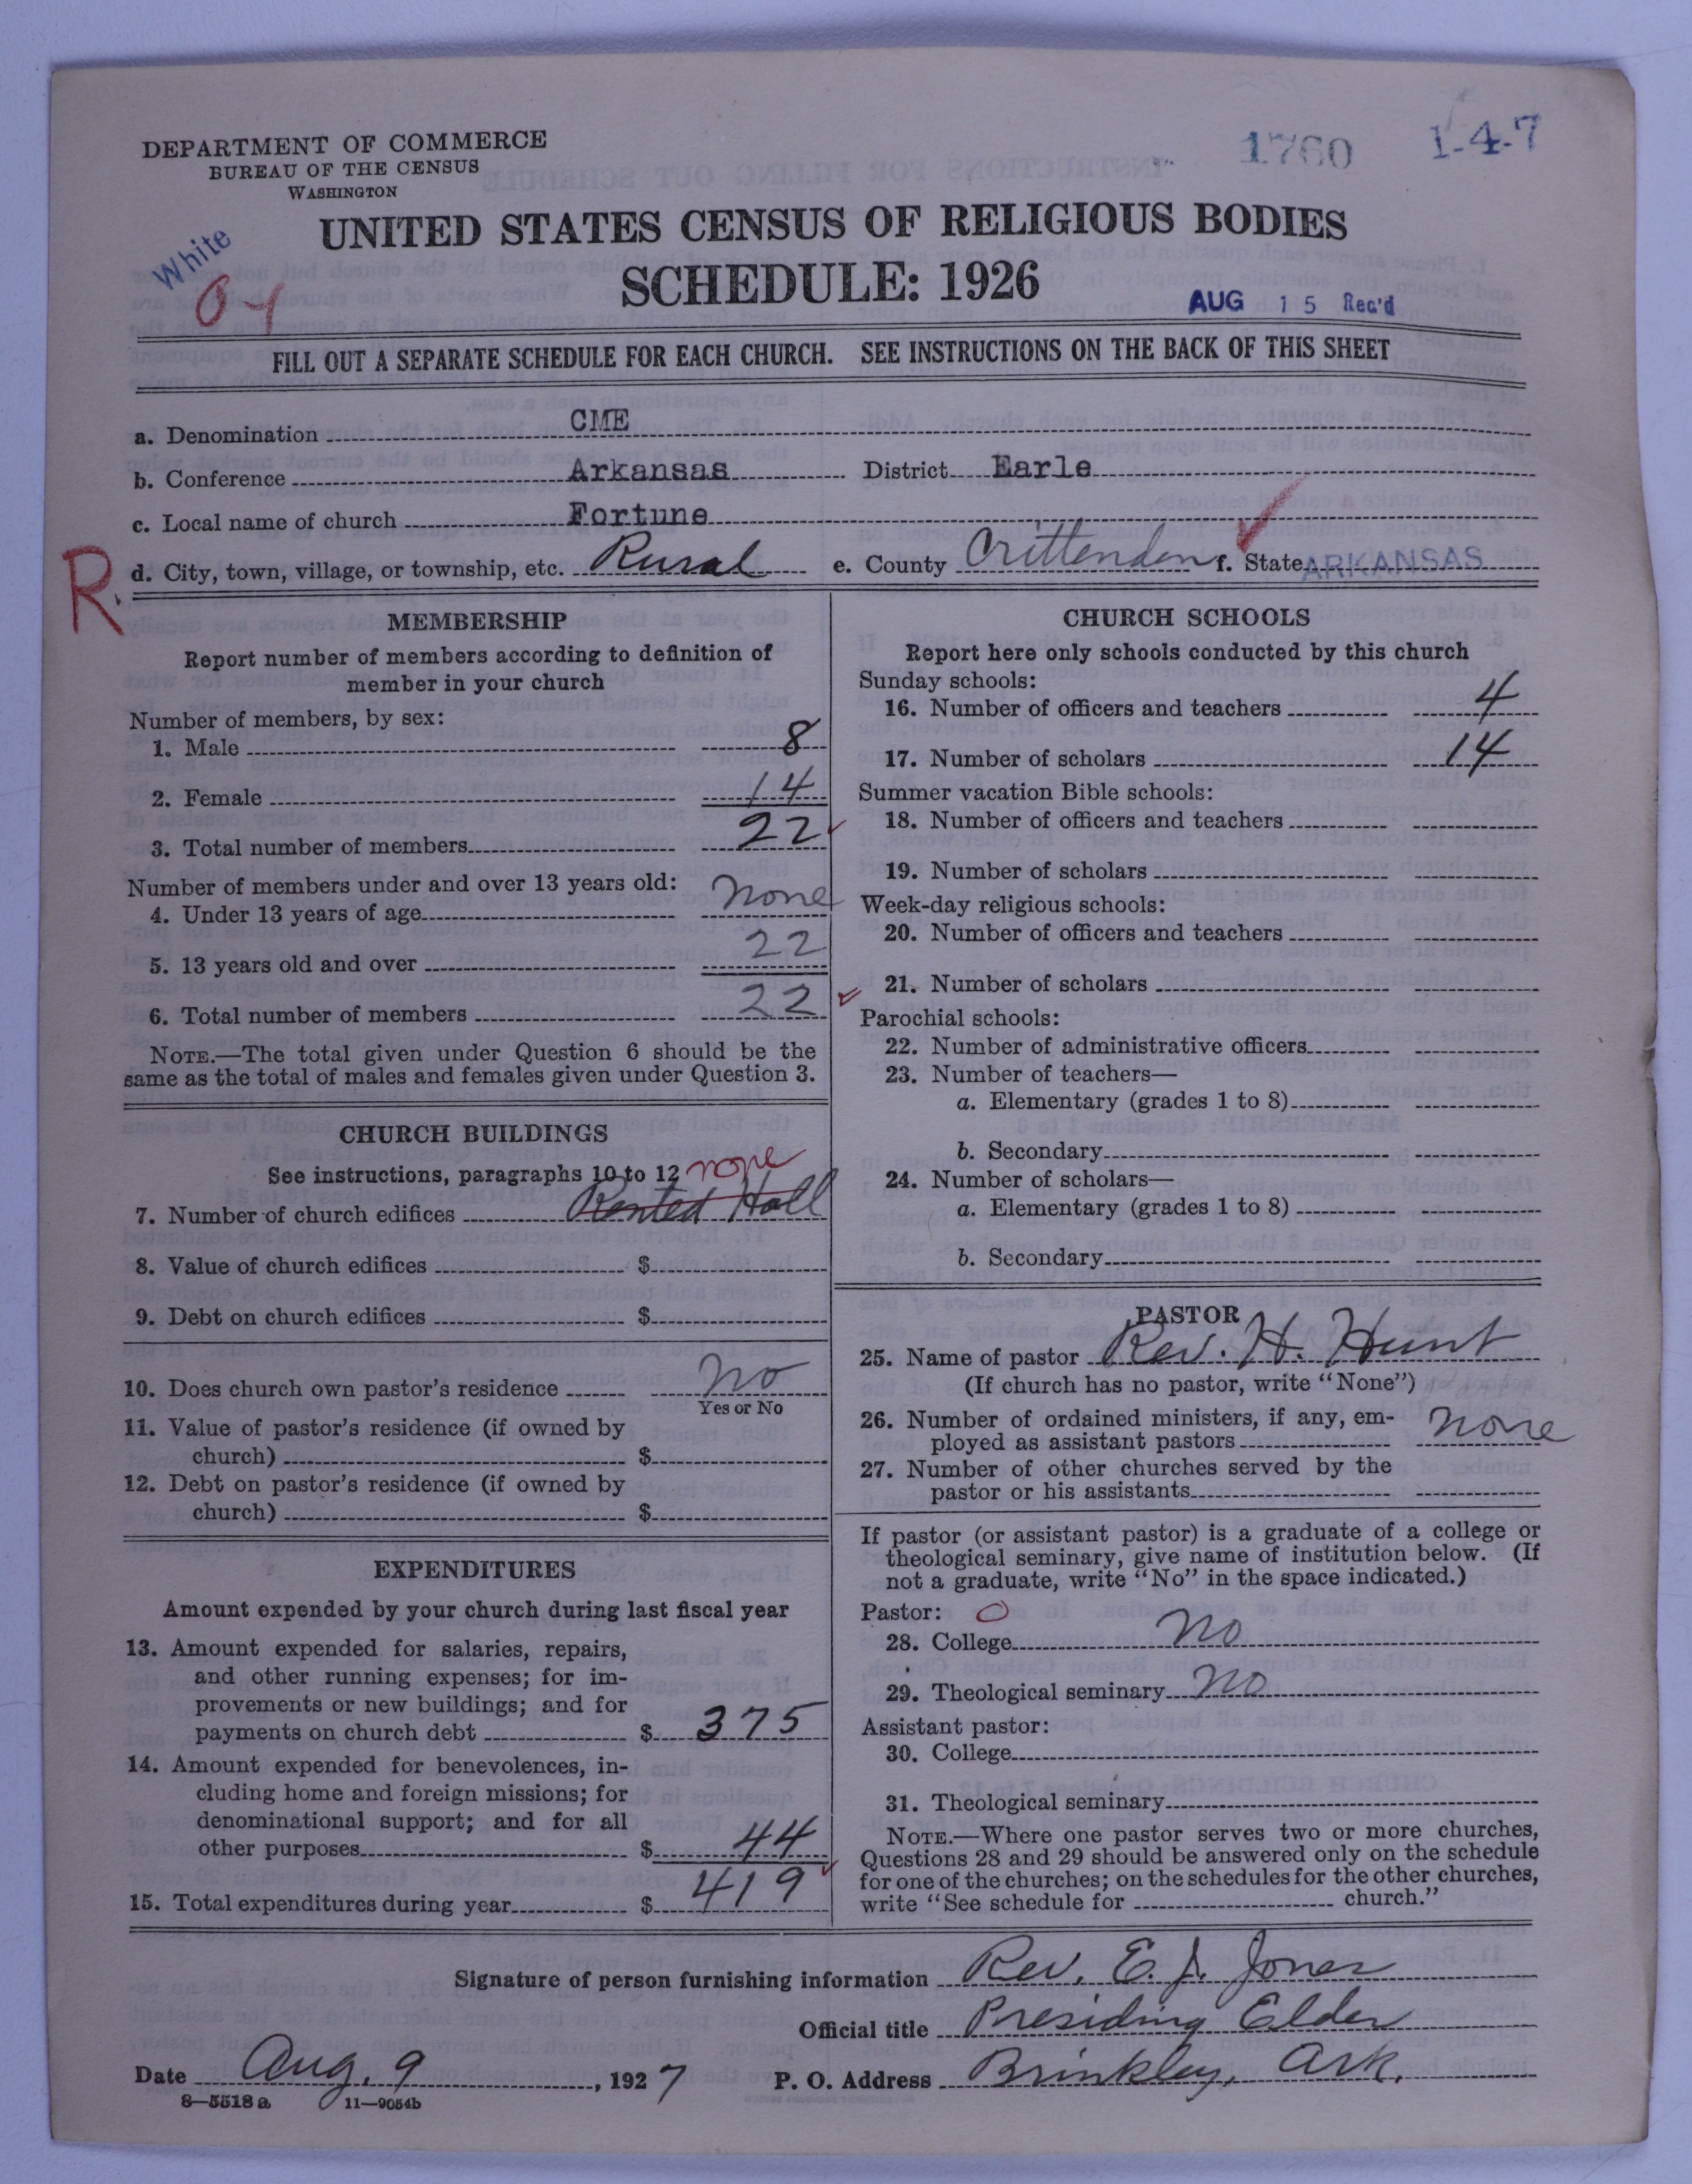 DEPARTMENT OF COMMERCE
BUREAU OF THE CENSUS
WASHINGTON
1760 1-4-7
White
UNITED STATES CENSUS OF RELIGIOUS BODIES
SCHEDULE: 1926
AUG 15 Rec'd
FILL OUT A SEPARATE SCHEDULE FOR EACH CHURCH. SEE INSTRUCTIONS ON THE BACK OF THIS SHEET
a. Denomination CME
b. Conference Arkansas District Earle
c. Local name of church Fortune
R
d. City, town, village, or township, etc. Rural e. County Crittenden f. State ARKANSAS
MEMBERSHIP
Report number of members according to definition of
member in your church
Number of members, by sex:
1. Male 8
2. Female 14
3. Total number of members 22
Number of members under and over 13 years old:
4. Under 13 years of age none
5. 13 years old and over 22
6. Total number of members 22
NOTE.—The total given under Question 6 should be the
same as the total of males and females given under Question 3.
CHURCH BUILDINGS
See instructions, paragraphs 10 to 12 none
7. Number of church edifices Rented Hall
8. Value of church edifices $
9. Debt on church edifices $
10. Does church own pastor's residence no
Yes or No
11. Value of pastor's residence (if owned by
church) $
12. Debt on pastor's residence (if owned by
church) $
EXPENDITURES
Amount expended by your church during last fiscal year
13. Amount expended for salaries, repairs,
and other running expenses; for im-
provements or new buildings; and for
payments on church debt $ 375
14. Amount expended for benevolences, in-
cluding home and foreign missions; for
denominational support; and for all
other purposes $ 44
15. Total expenditures during year $ 419
CHURCH SCHOOLS
Report here only schools conducted by this church
Sunday schools:
16. Number of officers and teachers 4
17. Number of scholars 14
Summer vacation Bible schools:
18. Number of officers and teachers
19. Number of scholars
Week-day religious schools:
20. Number of officers and teachers
21. Number of scholars
Parochial schools:
22. Number of administrative officers
23. Number of teachers—
a. Elementary (grades 1 to 8)
b. Secondary
24. Number of scholars—
a. Elementary (grades 1 to 8)
b. Secondary
PASTOR
25. Name of pastor Rev. H. Hunt
(If church has no pastor, write "None")
26. Number of ordained ministers, if any, em-
ployed as assistant pastors none
27. Number of other churches served by the
pastor or his assistants
If pastor (or assistant pastor) is a graduate of a college or
theological seminary, give name of institution below. (If
not a graduate, write "No" in the space indicated.)
Pastor: O
28. College no
29. Theological seminary no
Assistant pastor:
30. College
31. Theological seminary
NOTE.—Where one pastor serves two or more churches,
Questions 28 and 29 should be answered only on the schedule
for one of the churches; on the schedules for the other churches,
write "See schedule for church."
Signature of person furnishing information Rev. E. J. Jones
Official title Presiding Elder
Date Aug. 9, 1927 P. O. Address Brinkley, Ark.
8—5518a 11—9054b